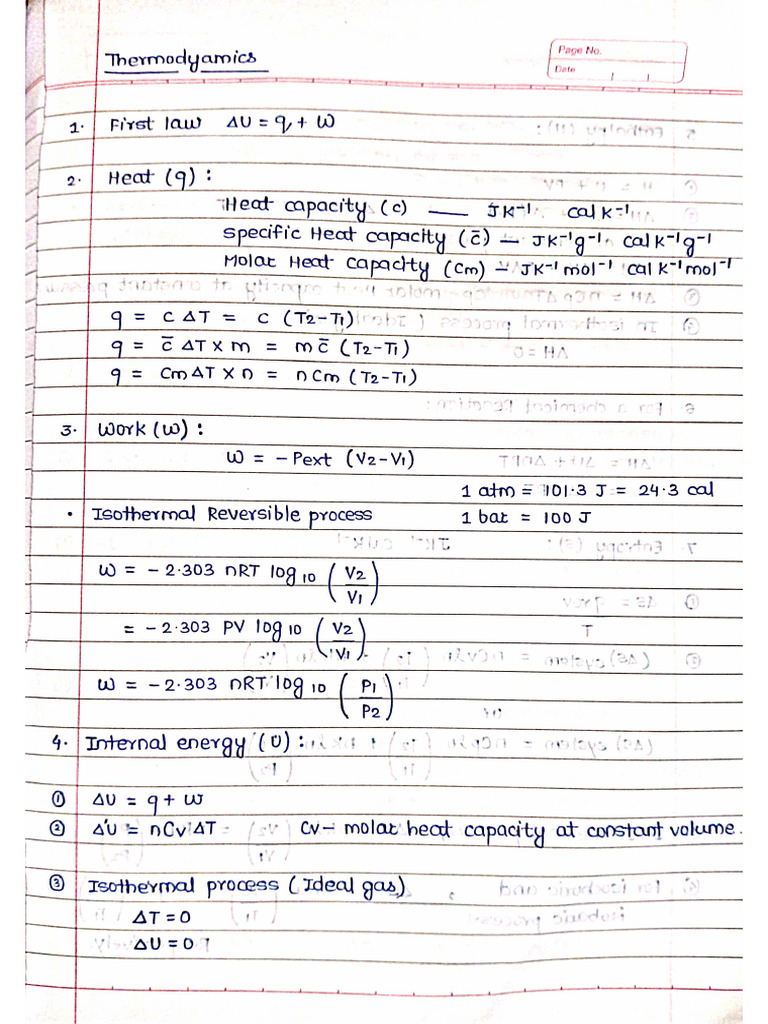 Thermodyamics
Page No.
Date
1. First law ΔU = q + W
2. Heat (q) :
Heat capacity (c) — JK⁻¹ cal K⁻¹
Specific Heat capacity (c̄) — JK⁻¹g⁻¹ cal K⁻¹g⁻¹
Molar Heat Capacity (Cm) — JK⁻¹mol⁻¹ cal K⁻¹mol⁻¹
q = c ΔT = c (T2-T1)
q = c̄ ΔT × m = m c̄ (T2-T1)
q = Cm ΔT × n = n Cm (T2-T1)
3. Work (W) :
W = - Pext (V2-V1)
1 atm = 101.3 J = 24.3 cal
• Isothermal Reversible process 1 bar = 100 J
W = - 2.303 nRT log10 (V2/V1)
= - 2.303 PV log10 (V2/V1)
W = - 2.303 nRT log10 (P1/P2)
4. Internal energy (U) :
① ΔU = q + W
② ΔU = nCv ΔT Cv - molar heat capacity at constant volume.
③ Isothermal process (Ideal gas)
ΔT = 0
ΔU = 0